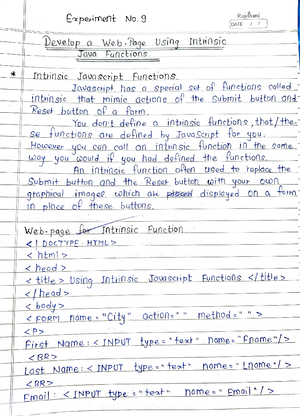 Experiment No. 9
Rajdhani
DATE / /
Develop a Web-Page Using Intrinsic
Java Functions
* Intrinsic Javascript Functions.
Javascript has a special set of functions called
intrinsic that mimic actions of the Submit button and
Reset button of a form.
You don't define a intrinsic functions, that/the-
se functions are defined by JavaScript for you.
However you can call an intrinsic function in the same
way you would if you had defined the functions.
An intrinsic function often used to replace the
Submit button and the Reset button with your own
graphical images which are displayed on a form
in place of these buttons.
Web-page for Intrinsic Function.
<! DOCTYPE HTML>
<html>
<head>
<title> Using Intrinsic Javascript Functions </title>
</head>
<body>
<FORM name="City" action=" " method=" ">
<P>
First Name: <INPUT type="text" name="Fname"/>
<BR>
Last Name: <INPUT type="text" name="Lname"/>
<BR>
Email: <INPUT type="text" name="Email"/>